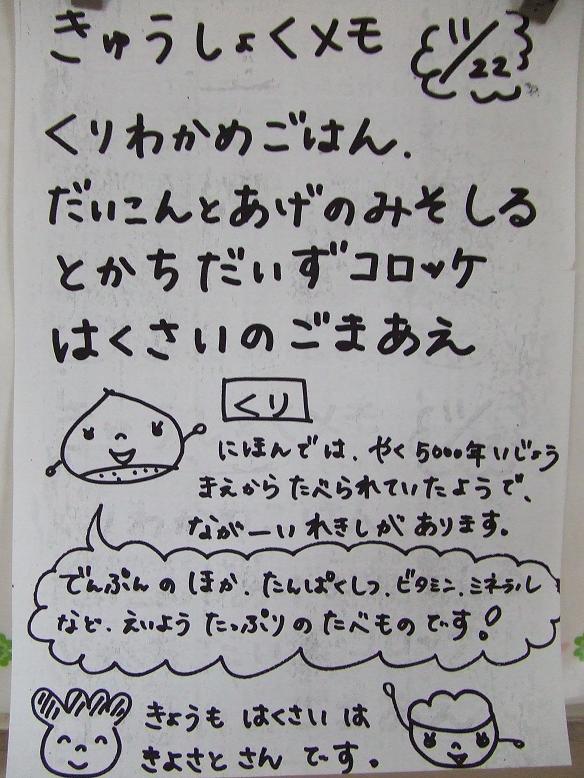 きゅうしょくメモ 11/22
くりわかめごはん.
だいこんとあげのみそしる
とかちだいずコロッケ
はくさいのごまあえ
くり
にほんでは、やく5000年いじょう
まえからたべられていたようで、
ながーいれきしがあります。
でんぷんのほか、たんぱくしつ、ビタミン、ミネラル
など、えいようたっぷりのたべものです!
きょうもはくさいは
きよさとさんです。